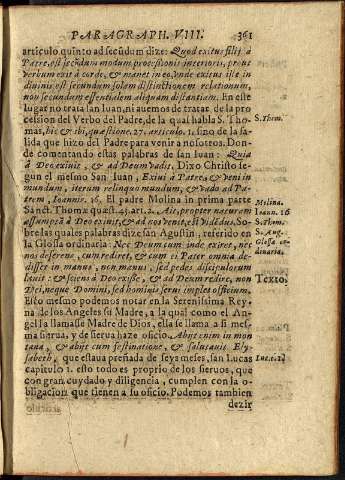 PARAGRAPH. VIII. 361
articulo quinto ad secũdum dize: Quod exitus filij à
Patre, est secũdum modum processionis interioris, prout
verbum exit à corde, & manet in eo, vnde exitus iste in
diuinis est secundum solam distinctionem relationum,
non secundum essentialem aliquam distantiam. En este
lugar no trata san Iuan, ni auemos de tratar de la pro
cession del Verbo del Padre, de la qual habla S. Tho
mas, hic & ibi, quæstione, 27. articulo 1. sino de la sa-
lida que hizo del Padre para venir a nosotros. Don-
de comentando estas palabras de san Iuan: Quia
à Deo exiuit, & ad Deum vadit. Dixo Christo se-
gun el mesmo San Iuan, Exiui à Patre, & veni in
mundum, iterum relinquo mundum, & vado ad Pa-
trem, Ioannis. 16. El padre Molina in prima parte
Sanct. Thomæ quæst. 43. art. 2. Ait, propter naturam
assumptã à Deo exiuit, & ad eos venit, est vidẽdus. So-
bre las quales palabras dize san Agustin, referido en
la Glossa ordinaria: Nec Deum cum inde exiret, nec
nos deserens, cum rediret, & cum ei Pater omnia de-
disset in manus, non manus, sed pedes discipulorum
lauit: & sciens à Deo exisse, & ad Deum redire, non
Dei, neque Domini, sed hominis serui implet officium.
Esto mesmo podemos notar en la Serenissima Rey-
na de los Angeles su Madre, a la qual como el An-
gel la llamasse Madre de Dios, ella se llama a si mes-
ma sierua, y de sierua haze oficio. Abijt enim in mon
tana, & abijt cum festinatione, & salutauit Ely-
sabeth, que estaua preñada de seys meses, san Lucas
capitulo 1. esto todo es proprio de los sieruos, que
con gran cuydado y diligencia, cumplen con la o-
bligacion que tienen a su oficio. Podemos tambien
dezir
S. Thom.
Molina.
Ioann. 16
S. Thom.
S. Aug.
Glossa or-
dinaria.
Texto.
Luc. c. 1.